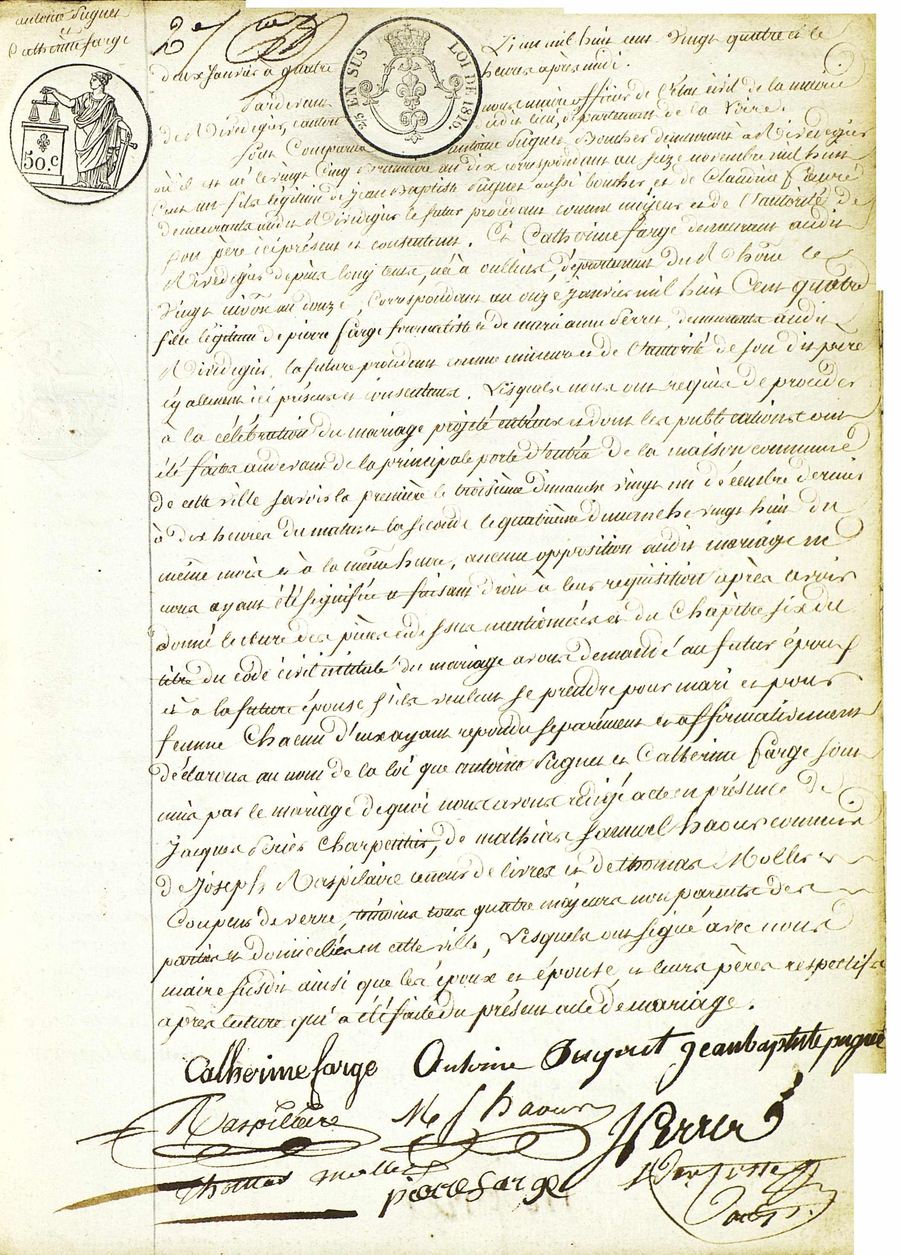 antoine Pugnet
et
Catherine farge
2e
50.C
25 EN SUS
LOI DE 1816.
L'an mil huit cent vingt quatre et le
deux Janvier à quatre heures après midi.
Pardevant nous maire officier de l'état civil de la mairie
de Rivedegier, canton dudit lieu, département de la Loire.
Sont Comparus antoine Pugnet Boucher demeurant à Rivedegier
où il est né le vingt Cinq Brumaire an dix correspondant au seize novembre mil huit
Cent un fils légitime de Jean Baptiste Pugnet aussi boucher et de Claudine
demeurants audit Rivedegier le futur procédant comme mineur et de l'autorité de
son père ici présent et consentant. Et Catherine farge demeurant audit
Rivedegier depuis long tems, née à oullins, département du Rhône le
vingt nivose an douze, Correspondant au onze janvier mil huit Cent quatre
fille légitime de pierre farge et de marie anne Perret, demeurants audit
Rivedegier, la future procédant comme mineure et de l'autorité de son dit père
également ici présent et consentant. Lesquels nous ont requis de procéder
à la célébration du mariage projeté entr'eux et dont les publications ont
été faites audevant de la principale porte d'entrée de la maison commune
de cette ville savoir la première le troisième dimanche vingt un décembre dernier
à dix heures du matin et la seconde le quatrième dimanche vingt huit du
même mois et à la même heure, aucune opposition audit mariage ne
nous ayant été signifiée faisant droit à leur requisition après avoir
donné lecture des pièces ci dessus mentionnées et du Chapitre six du
titre du code civil intitulé du mariage avons demandé au futur époux
et à la future épouse s'ils veulent se prendre pour mari et pour
femme Chacun d'eux ayant répondu séparément et affirmativement
déclarons au nom de la loi que antoine Pugnet et Catherine farge sont
unis par le mariage de quoi nous avons rédigé acte en présence de
Jacques Perier Charpentier, de mathias Samuel haour commis
de Joseph Raspilaire teneur de livres et de thomas Moller
Coupeur de verre, témoins tous quatre majeurs non parents des
parties et domiciliés en cette ville, Lesquels ont signé avec nous
maire susdit ainsi que les époux et épouse, et leurs pères respectifs
après lecture qui a été faite du présent acte de mariage.
Catherine farge Antoine Pugnet jean baptiste pugnet
Raspillaire M S haour J Perrer
thomas moller pierre farge